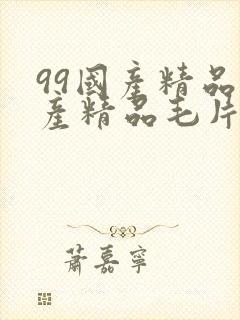 99國產精品
產精品毛片
蕭嘉寧